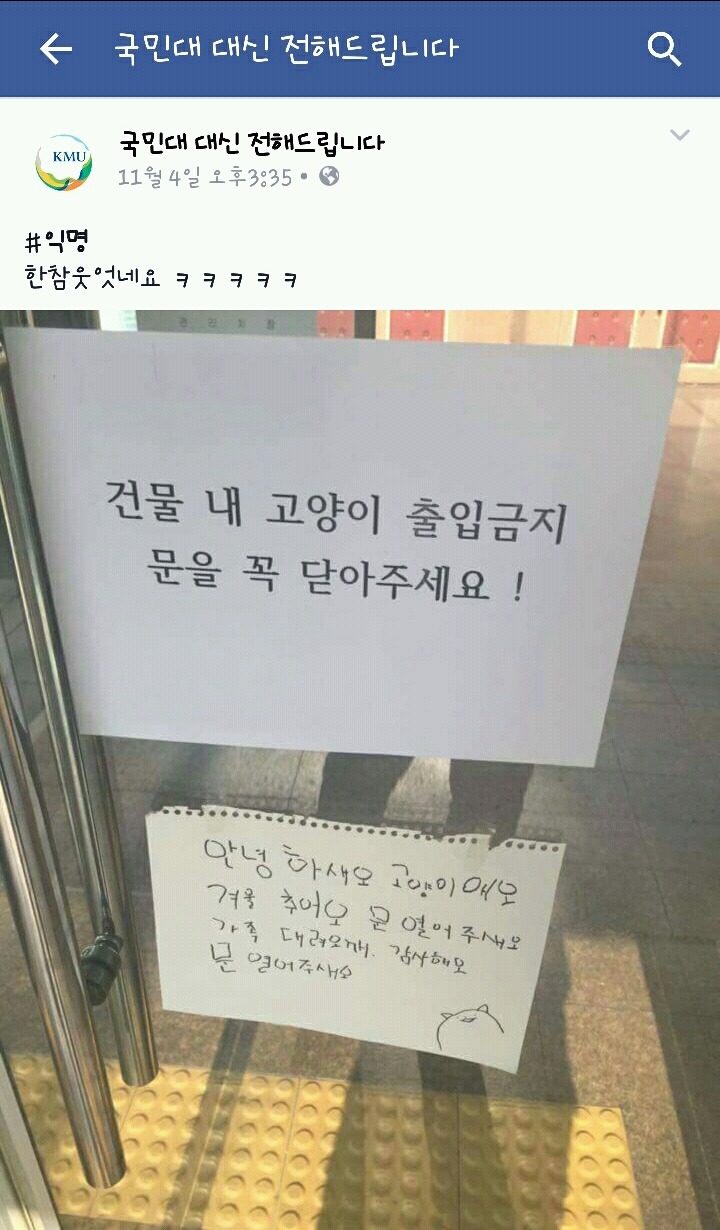 국민대 대신 전해드립니다
KMU
국민대 대신 전해드립니다
11월 4일 오후3:35 •
#익명
한참웃엇네요 ㅋㅋㅋㅋㅋ
관리처장
건물 내 고양이 출입금지
문을 꼭 닫아주세요 !
안녕 하새오 고양이애오
겨울 추어오 문 열어주새오
가족 대려오깨. 감사해오
문 열어주새오